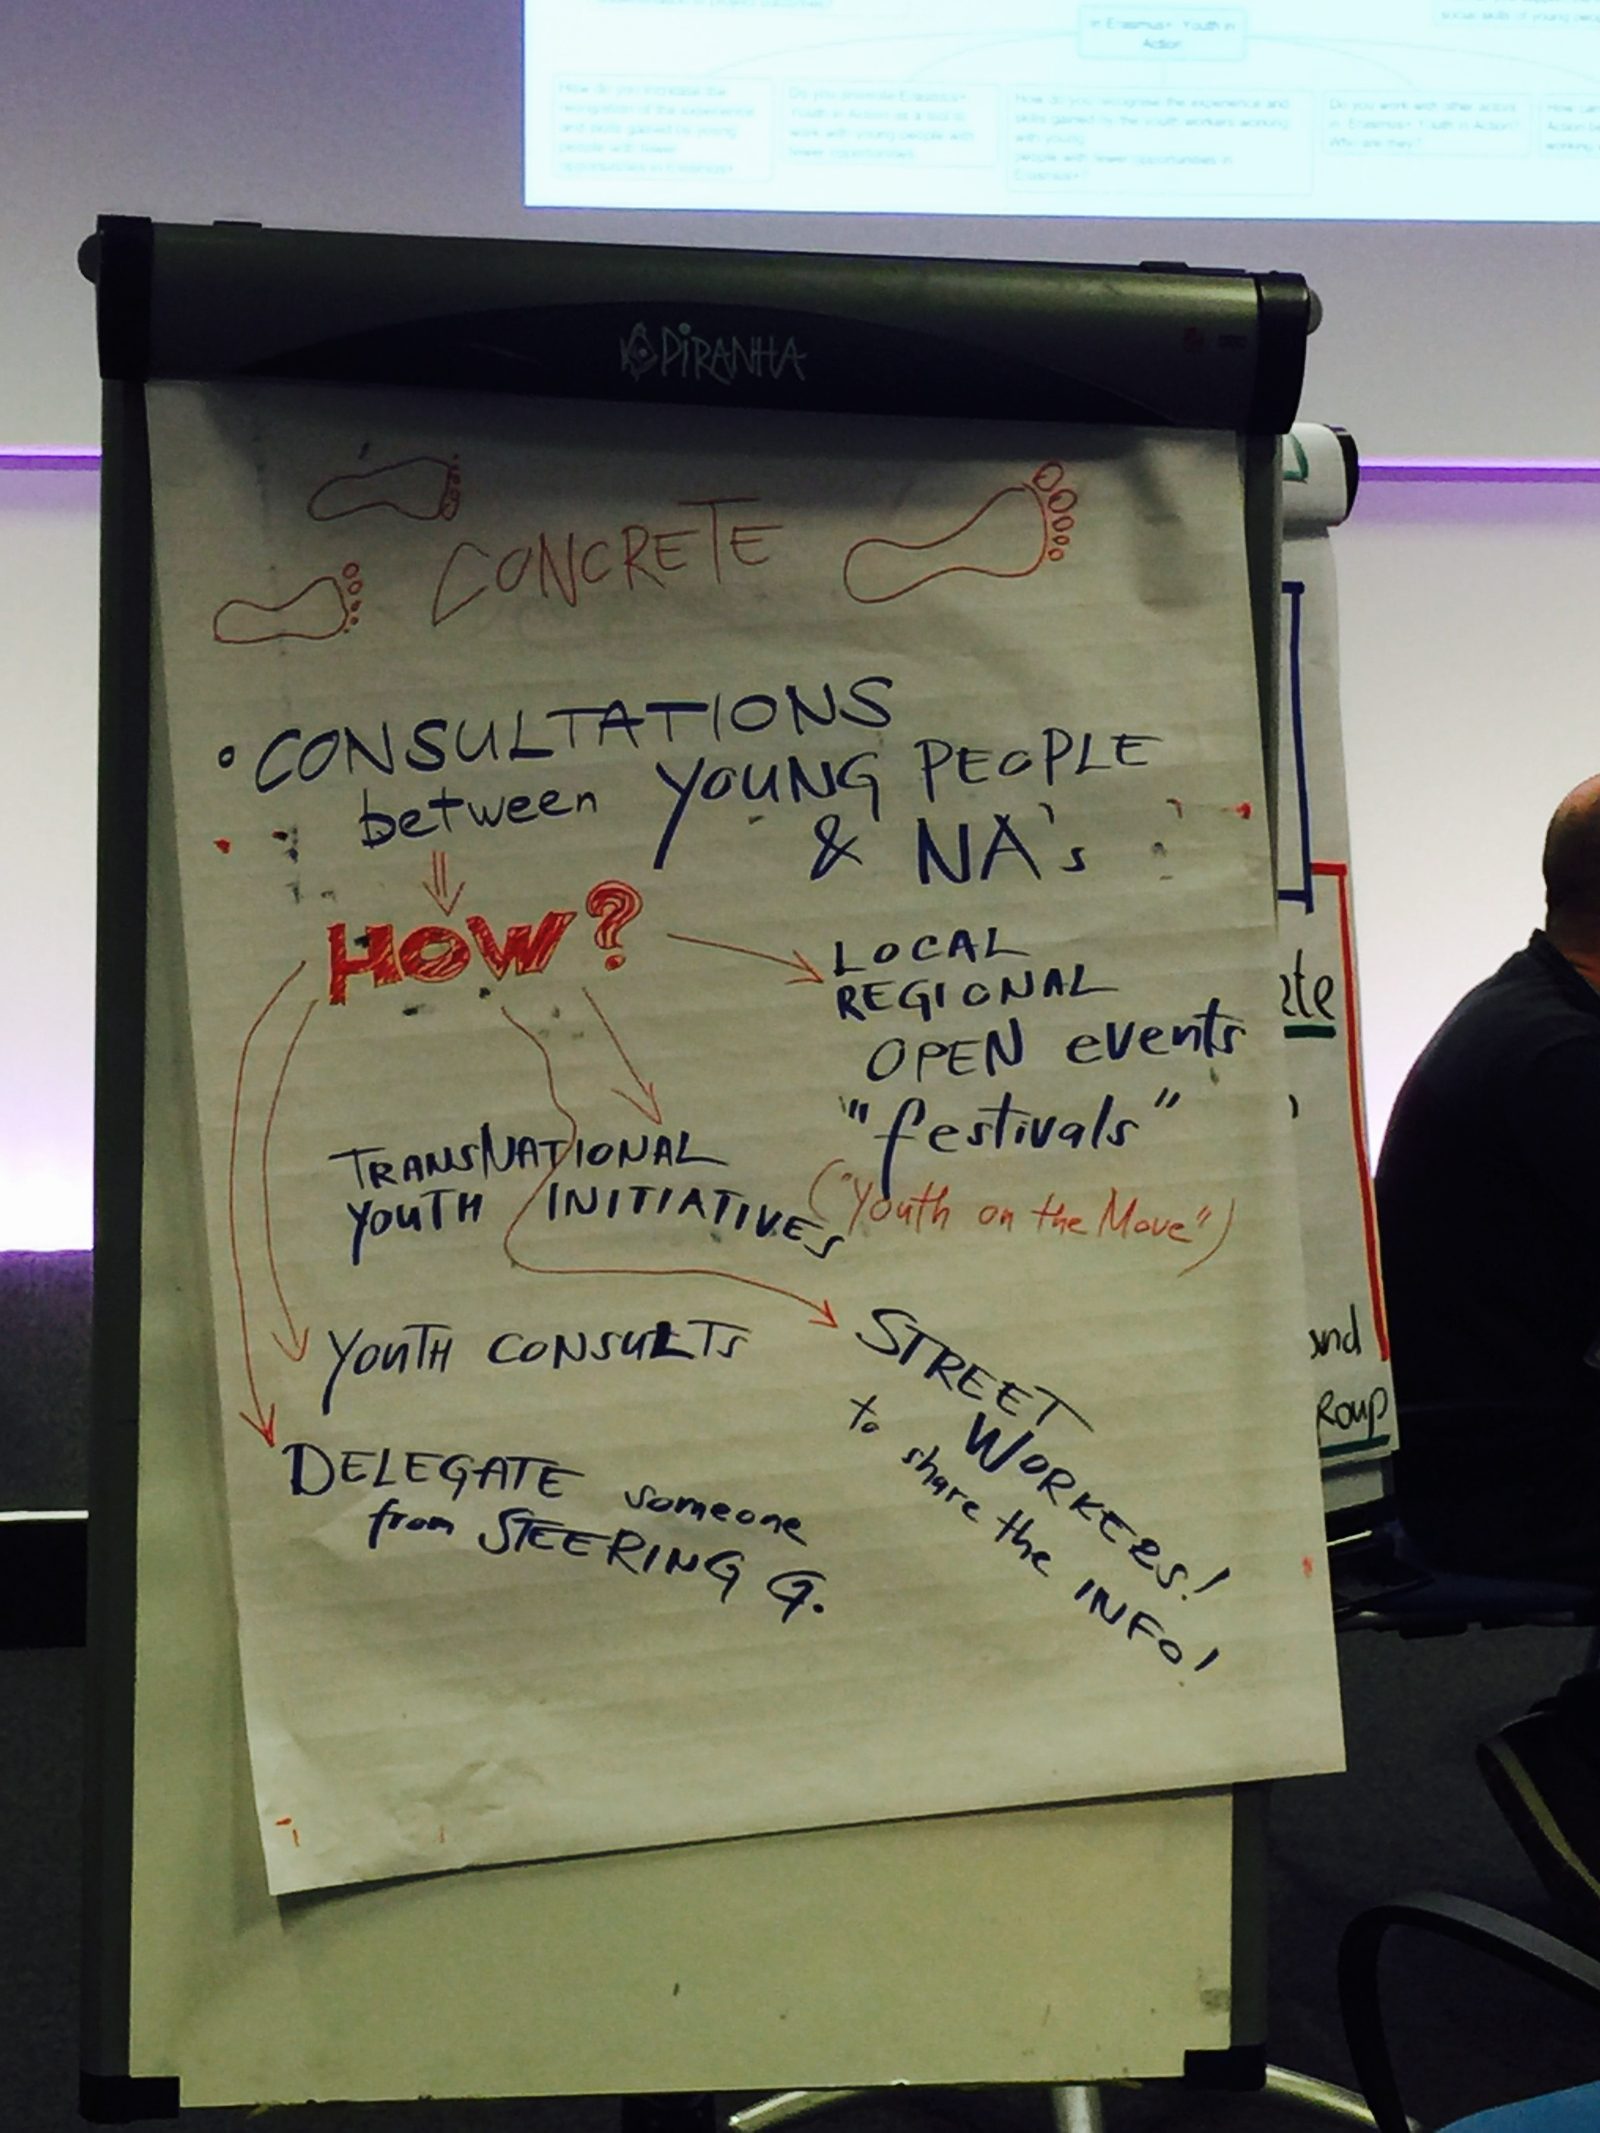 in Erasmus+ Youth in
Action
How do you increase the
recognition of the experience
and skills gained by young
people with fewer
opportunities in Erasmus+
Do you promote Erasmus+
Youth in Action as a tool to
work with young people with
fewer opportunities
How do you recognise the experience and
skills gained by the youth workers working
with young
people with fewer opportunities in
Erasmus+?
Do you work with other actors
in Erasmus+ Youth in Action?
Who are they?
social skills of young
PiRANHA
CONCRETE
• CONSULTATIONS
between YOUNG PEOPLE
& NA's
HOW?
LOCAL
REGIONAL
OPEN events
"festivals"
("Youth on the Move")
TRANSNATIONAL
YOUTH INITIATIVES
YOUTH CONSULTS
DELEGATE someone
from STEERING G.
STREET
WORKERS!
to share the INFO!